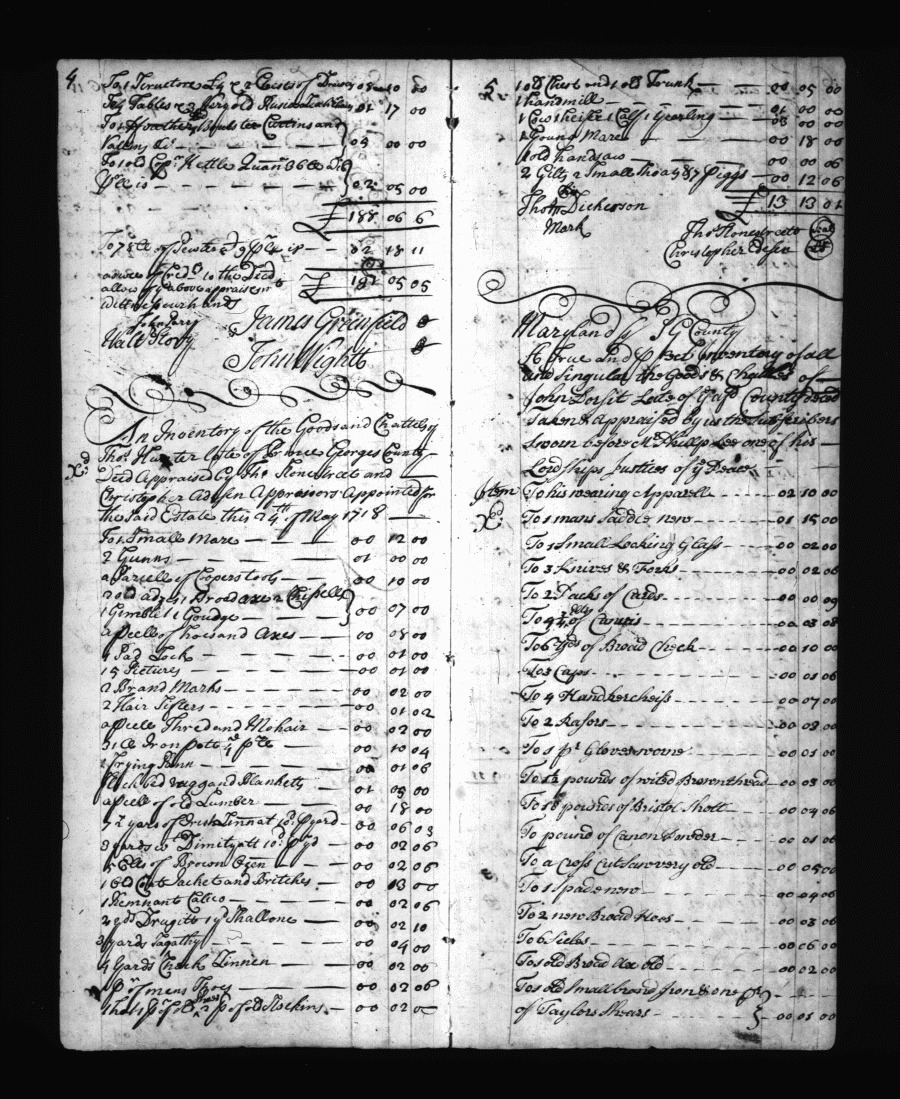 4
To 1 Scructore & 2 Cases of Drawers 08 10 00
To 4 Tables 3 very old Rusia Leather 01 17 00
To 1 & Boulster Curtins and
Vallens &c 05 00 00
To 1 old Copr Kettle Quan 36 lb
pr lb is 02 05 00
£ 188 06 6
To 78 lb of Pewter 9 pr lb is 02 18 11
£ 05 05
allow of ye above appraisment
wittness our hands
James Greenfield
John Wight
An Inventory of the Goods and Chattels of
Thos Hunter late of Prince Georges County
Decd Appraised by Tho Stonestreete and
Christopher Edelen Appraisors Appointed for
the said Estate this 24th of May 1718
To 1 Small Mare 00 12 00
2 Gunns 01 00 00
a Parcell of Coopers tools 00 10 00
2 old adzes 1 Broad axe 2 Chissells
1 Gimblet 1 Goudge 00 07 00
a pcell of hoes and Axes 00 08 00
1 Pad Lock 00 01 00
15 Pictures 00 01 00
2 Brand Marks 00 02 00
2 Hair Sifters 00 01 02
a pcele Thred and Mohair 00 02 00
31 lb Iron pott 4d pr lb 00 10 04
1 Frying Pann 00 01 06
bed rugg and blankets 01 05 00
a pcell of old Lumber 00 18 00
7½ yards of Irish Linnat 10d pr yard 00 06 03
3 yards wt Dimity att 10d pr yd 00 02 06
5 Ells of Brown Ozen 00 02 06
1 Old Coat Jacket and Britches 00 13 00
1 Remnant Calico 00 02 06
2 yds Drugitt 1 yd Shallone 00 02 10
3 yards Tagathy 00 04 00
4 Yards Check Linnen 00 02 00
1 pr of mens Shoes 00 02 06
pr of old 2 pr of old Stockins 00 02 00
5
1 old Chest and 1 old Trunk 00 05 00
1 handmill 01 00 00
1 Cow 1 heifer 1 Calf 1 Yearling 00 00
1 Young Mare 00 18 00
1 old handsaw 00 00 06
2 Gilts 2 Small Shoats & 7 Piggs 00 12 06
£ 13 13 01
Thom Dickerson
Mark
Tho Stonestreete Seal
Christopher Edelen
Maryland P G County
A True and pfect Inventory of all
and Singular the Goods & Chattles of
John late of ye afsd County deced
Taken & Appraised by us the Subscribers
Sworn before Mr Phillip Lee one of his
Lordships Justices of ye Peace
Item To his wearing Apparell 02 10 00
To 1 mans Saddle new 01 15 00
To 1 Small Looking Glass 00 02 00
To 3 Knives & Forks 00 02 06
To 2 Packs of Cards 00 00 09
To 4½ ells of Canvis 00 03 08
To 6 yds of Broad Check 00 10 00
To 3 Caps 00 01 06
To 4 Handkercheifs 00 07 00
To 2 Rasors 00 03 00
To 1 pr Gloves worne 00 01 00
To 1½ pounds of Brownthread 00 03 00
To 18 pounds of Bristol Shott 00 04 06
To pound of canon Powder 00 01 06
To a Cross cut saw very old 00 05 00
To 1 Spade new 00 04 06
To 2 new Broad Hoes 00 03 06
To 6 Sicles 00 06 00
To 1 old Broad Axe old 00 02 00
To 1 old small brand Iron & one pr
of Taylors Shears 00 01 00